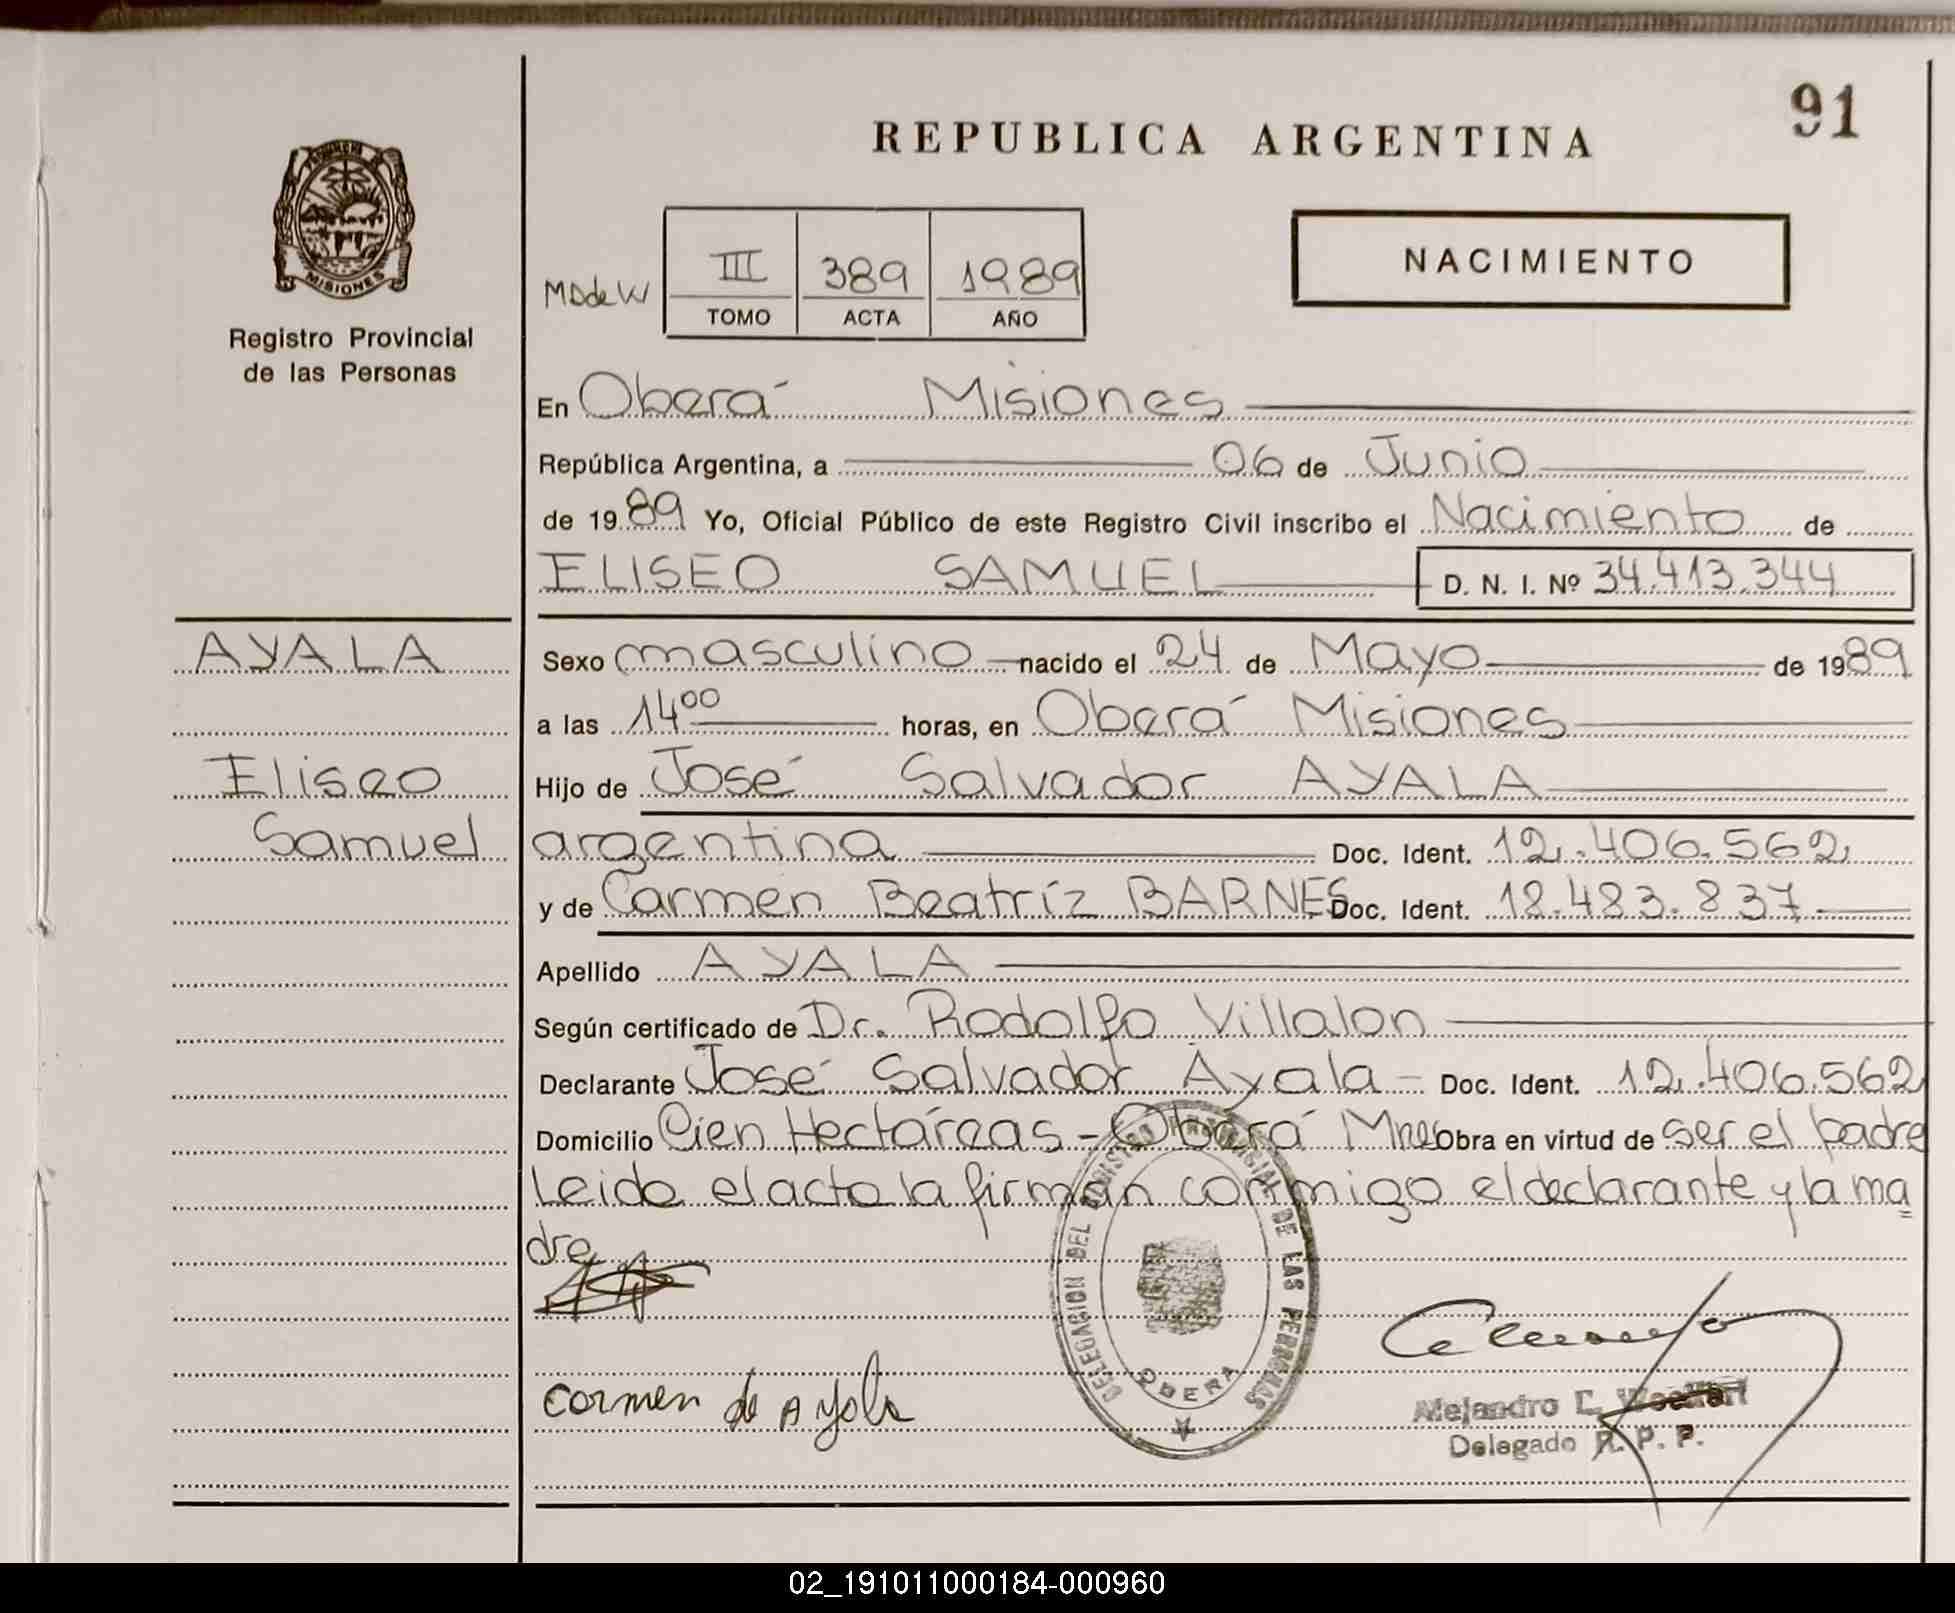 91
REPUBLICA ARGENTINA
MISIONES
Registro Provincial
de las Personas
MDdeW
III 389 1989
TOMO ACTA AÑO
NACIMIENTO
En Oberá Misiones
República Argentina, a 06 de Junio
de 1989 Yo, Oficial Público de este Registro Civil inscribo el Nacimiento de
ELISEO SAMUEL D. N. I. Nº 34.413.344
AYALA
Eliseo
Samuel
Sexo masculino nacido el 24 de Mayo de 1989
a las 14⁰⁰ horas, en Oberá Misiones
Hijo de José Salvador AYALA
argentina Doc. Ident. 12.406.562
y de Carmen Beatríz BARNES Doc. Ident. 18.483.837
Apellido AYALA
Según certificado de Dr. Rodolfo Villalon
Declarante José Salvador Ayala - Doc. Ident. 12.406.562
Domicilio Cien Hectáreas - Oberá Mnes Obra en virtud de ser el padre
Leida el acta la firman conmigo el declarante y la ma
dre
DELEGACION DEL REGISTRO PROVINCIAL DE LAS PERSONAS
OBERA
Carmen de Ayala
Alejandro E.
Delegado R. P. P.
02_191011000184-000960